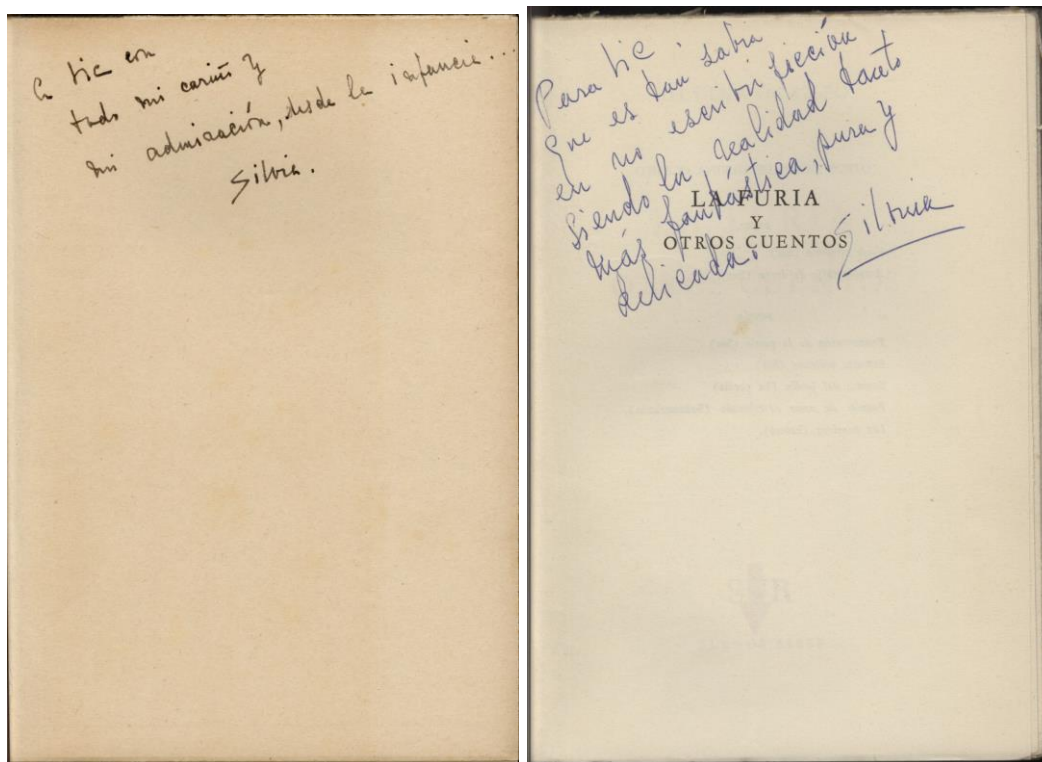 A Tic con
todo mi cariño y
mi admiración, desde la infancia...
Silvina.
Para Tic
que es tan sabia
en no escribir ficción
siendo la realidad tanto
más fantástica, pura y
delicada.
Silvina
LA FURIA
Y
OTROS CUENTOS